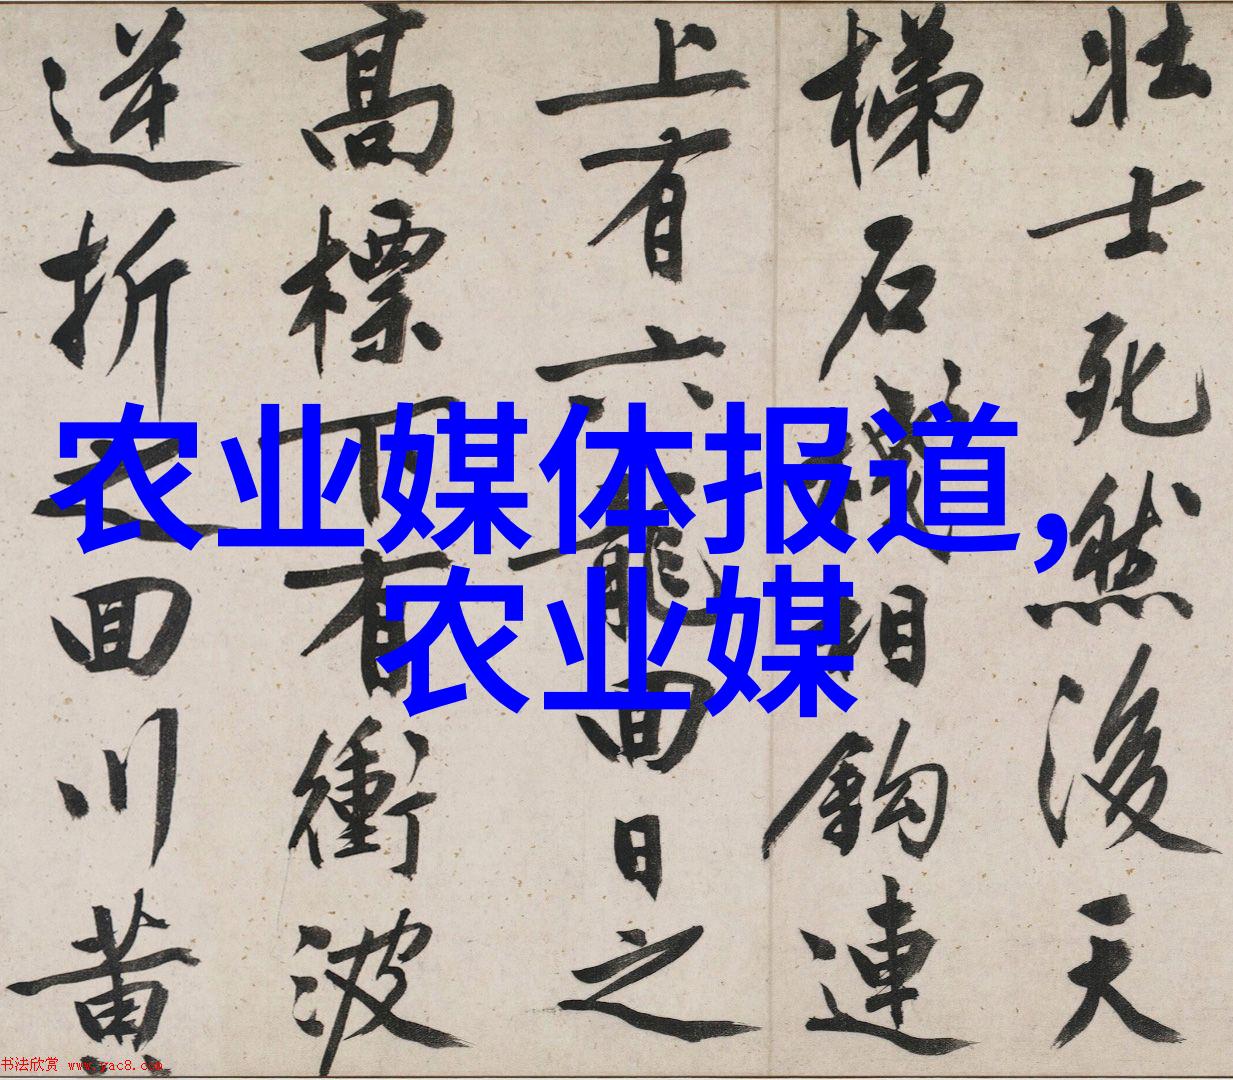 壮士死然後天
梯石棧相鈎連
上有六龍回日之
高標下有衝波
逆折之回川黄
农业媒体报道,
农业媒
书法欣赏 www.yac8.com